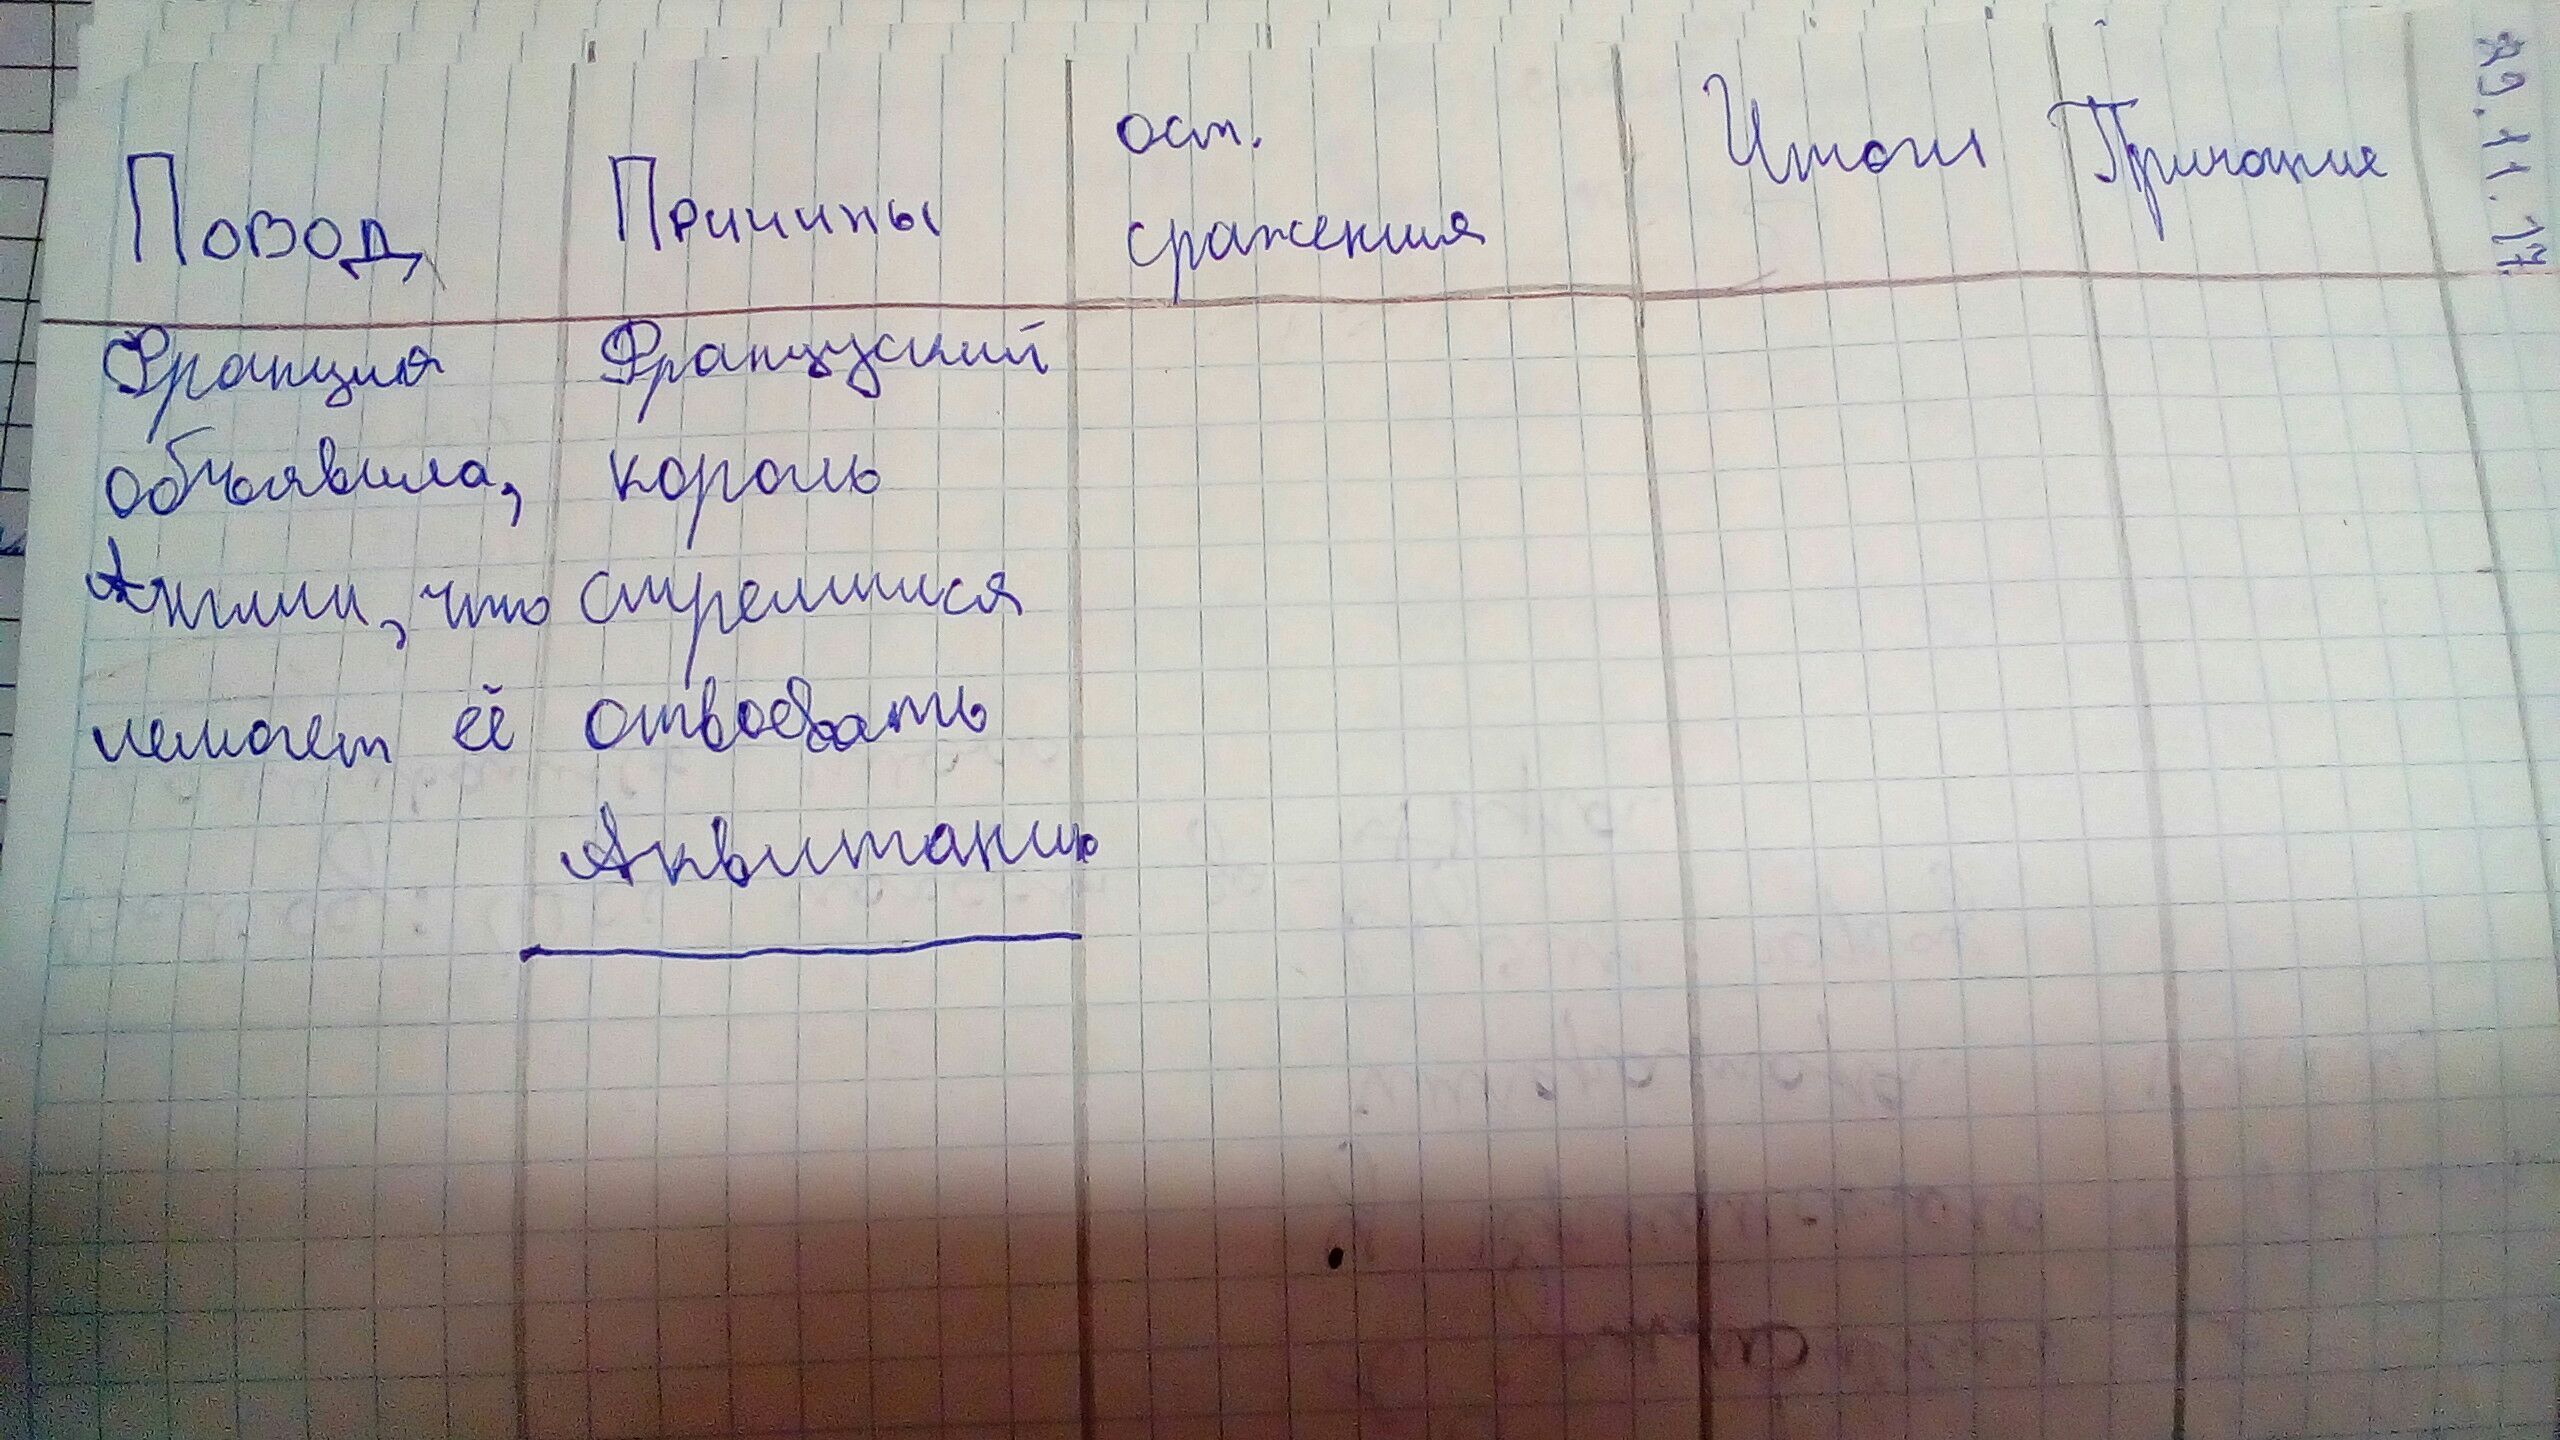 29.11.17.
Повод
Причины
осн.
сражения
Итоги
Причание
Франция
объявила,
Англии, что
немогет её
Француский
король
стремился
отвоевать
Аквитанию